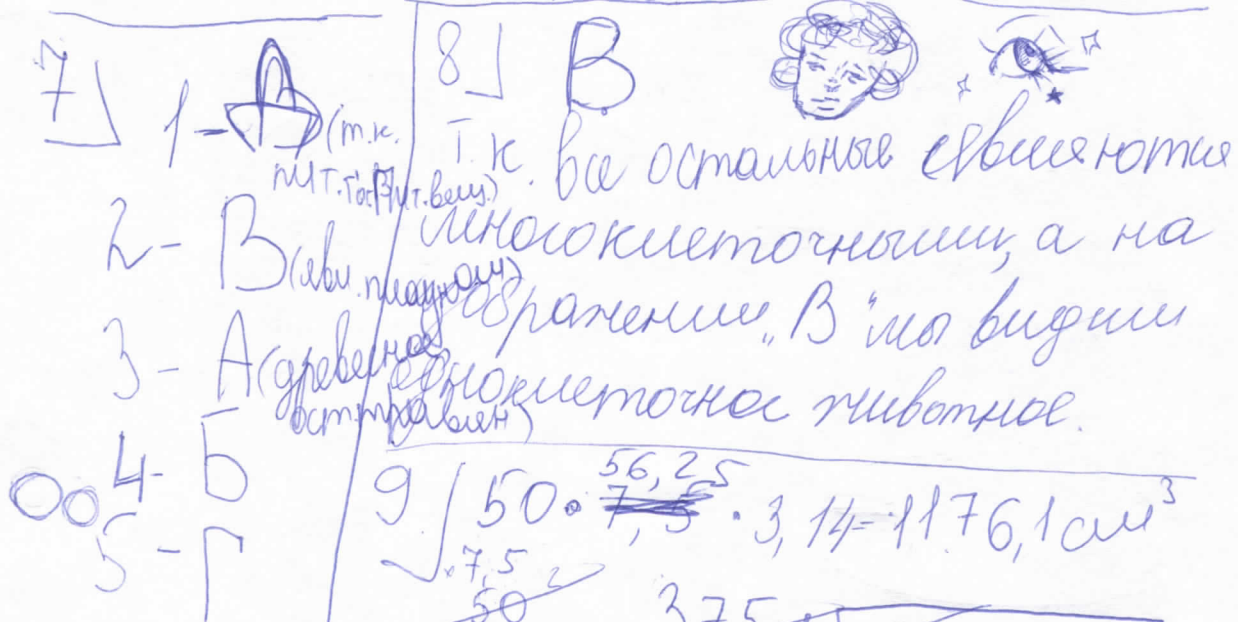 7
1 - Д (т.к.
пит.
2 - В (яви. плаун
3 - А (древесное
4 - Б
5 - Г
8 В.
Т.к. все остальные являются
многоклеточными, а на
изображении „В“ мы видим
одноклеточное животное.
9 50 · 56,25 · 3,14=11176,1 см³
7,5
50
375